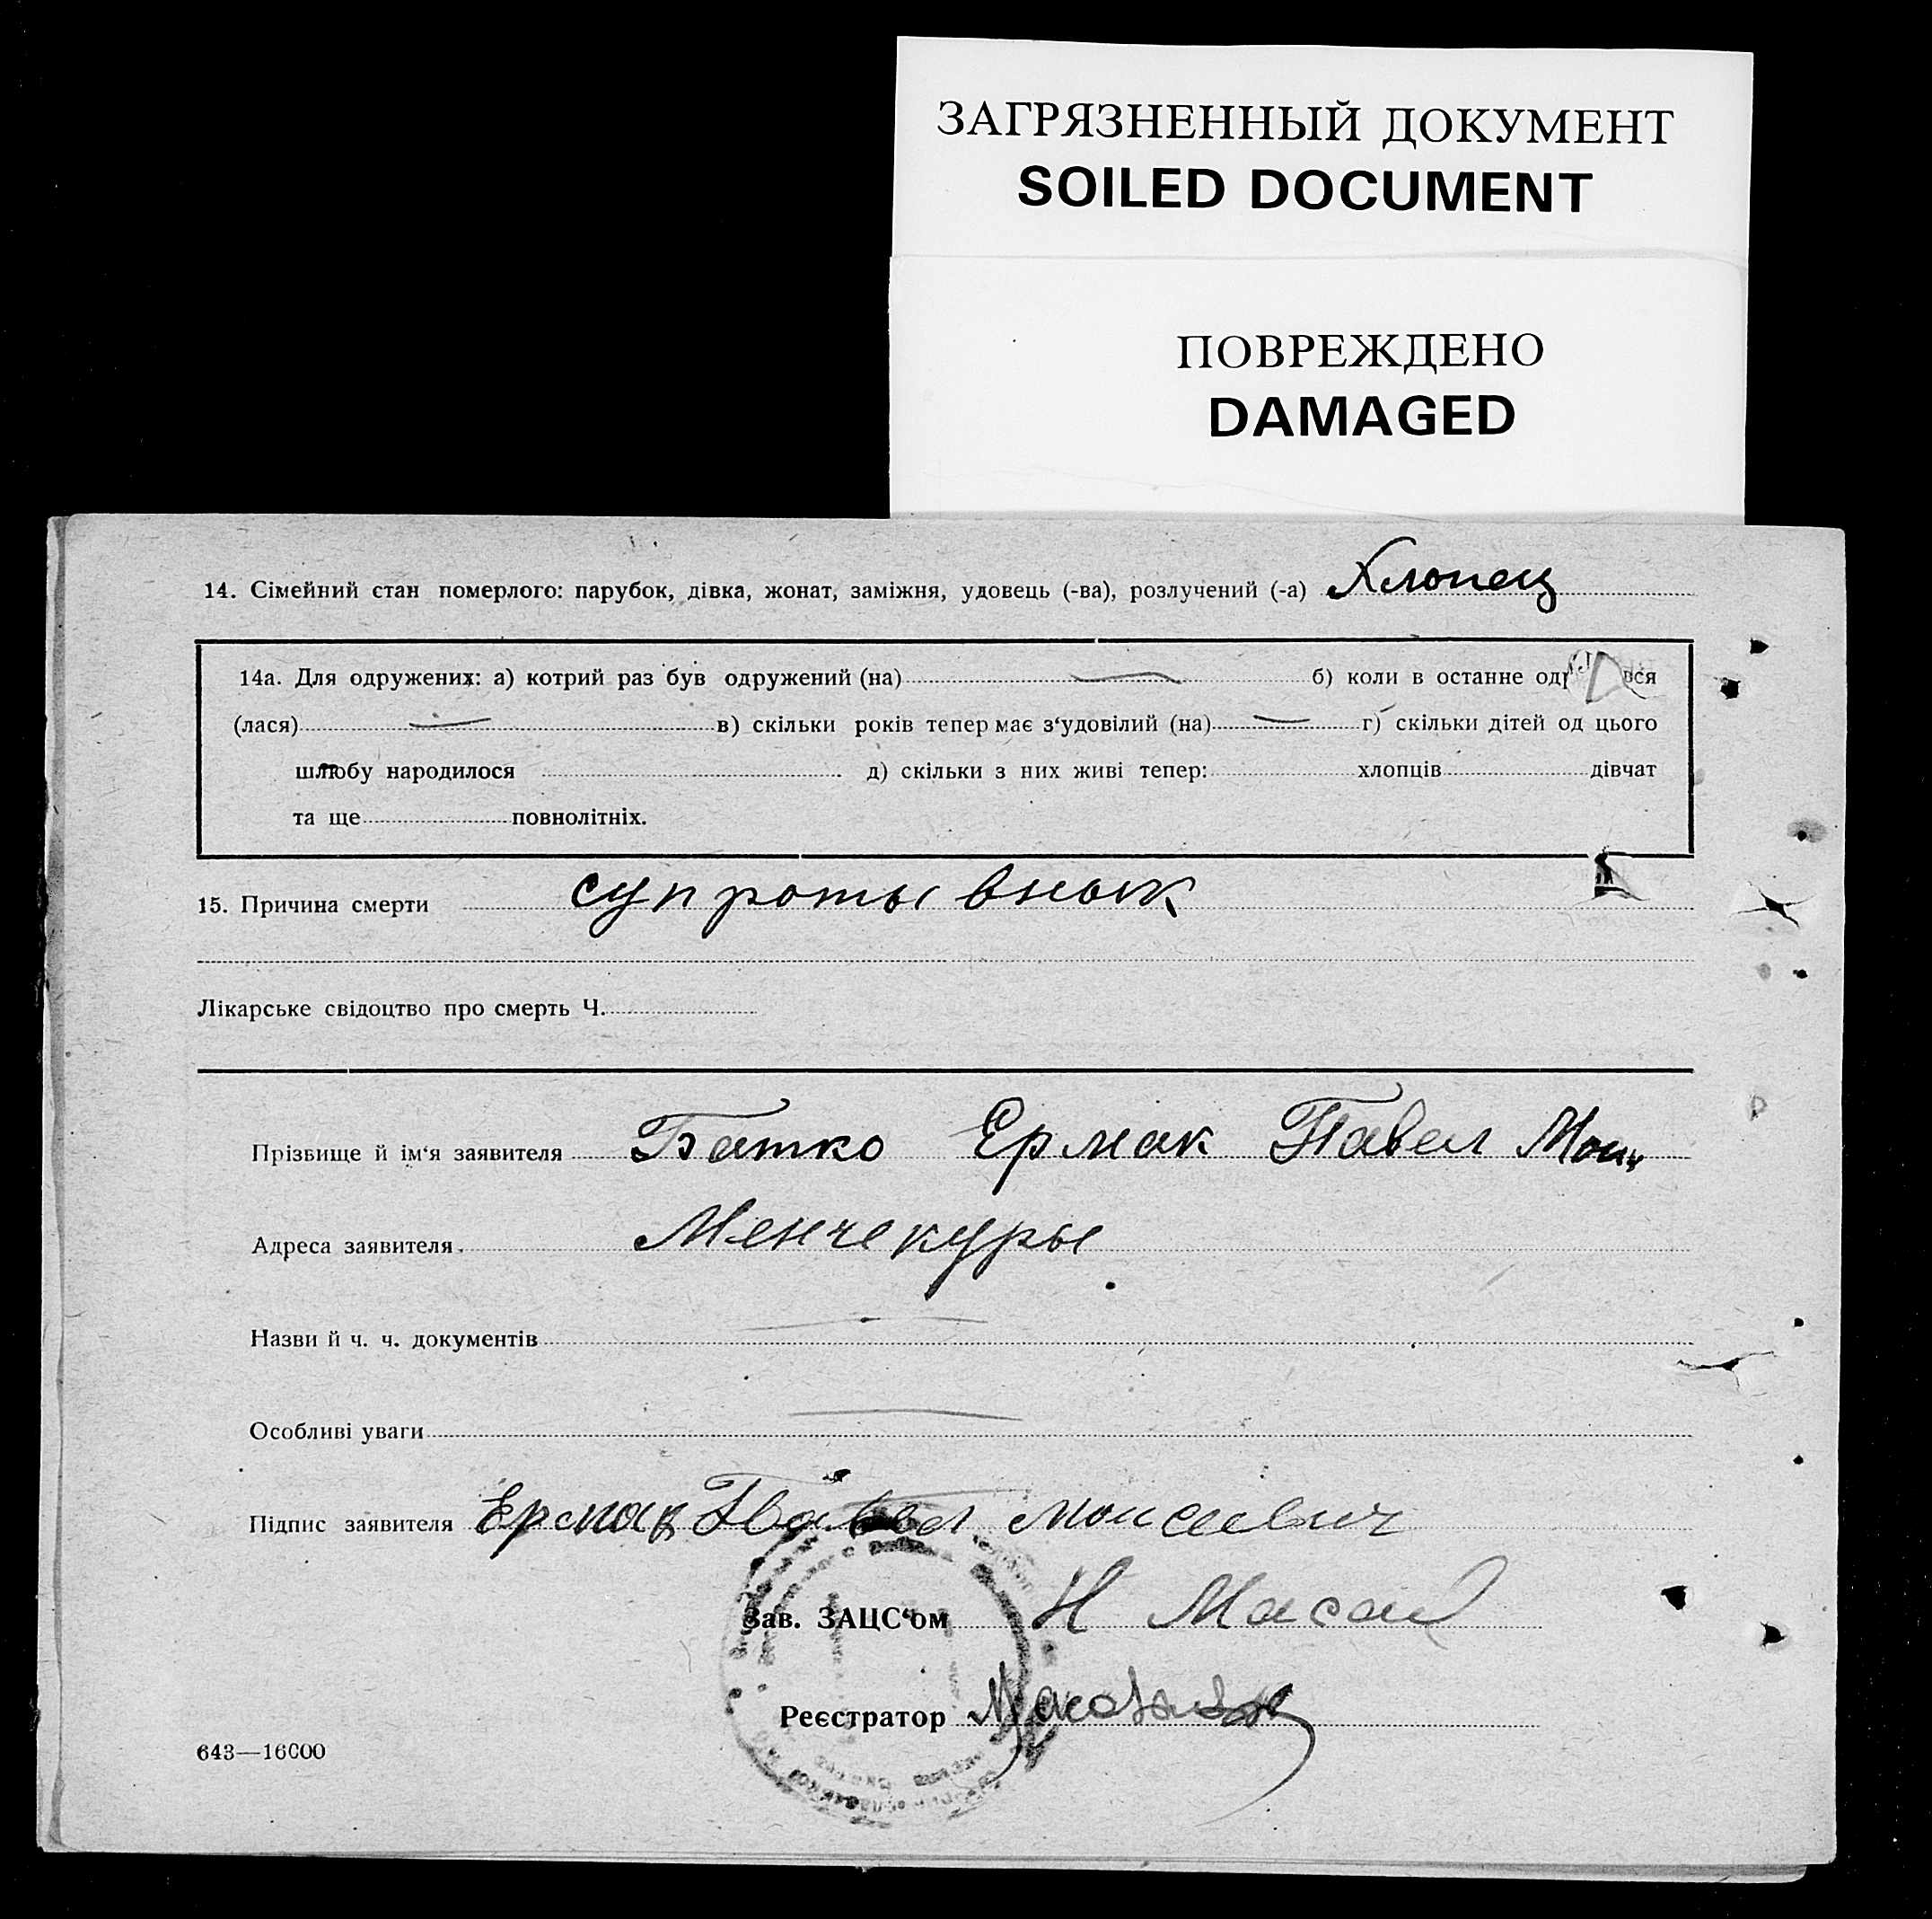 ЗАГРЯЗНЕННЫЙ ДОКУМЕНТ
SOILED DOCUMENT
ПОВРЕЖДЕНО
DAMAGED
14. Сімейний стан померлого: парубок, дівка, жонат, заміжня, удовець (-ва), розлучений (-а) Хлопец
14а. Для одружених: а) котрий раз був одружений (на) б) коли в останне
(лася) в) скільки років тепер має з‘удовілий (на) г) скільки дітей од цього
шлюбу народилося д) скільки з них живі тепер: хлопців дівчат
та ще повнолітніх.
15. Причина смерти супротывнык
Лікарське свідоцтво про смерть Ч.
Прізвище й ім‘я заявителя Батко Ермак Павел Мои
Адреса заявителя. Менчекуры
Назви й ч. ч. документів
Особливі уваги
Підпис заявителя Ермак Павел моисеевич
Зав. ЗАЦС‘ом Н
Реєстратор
643—16000